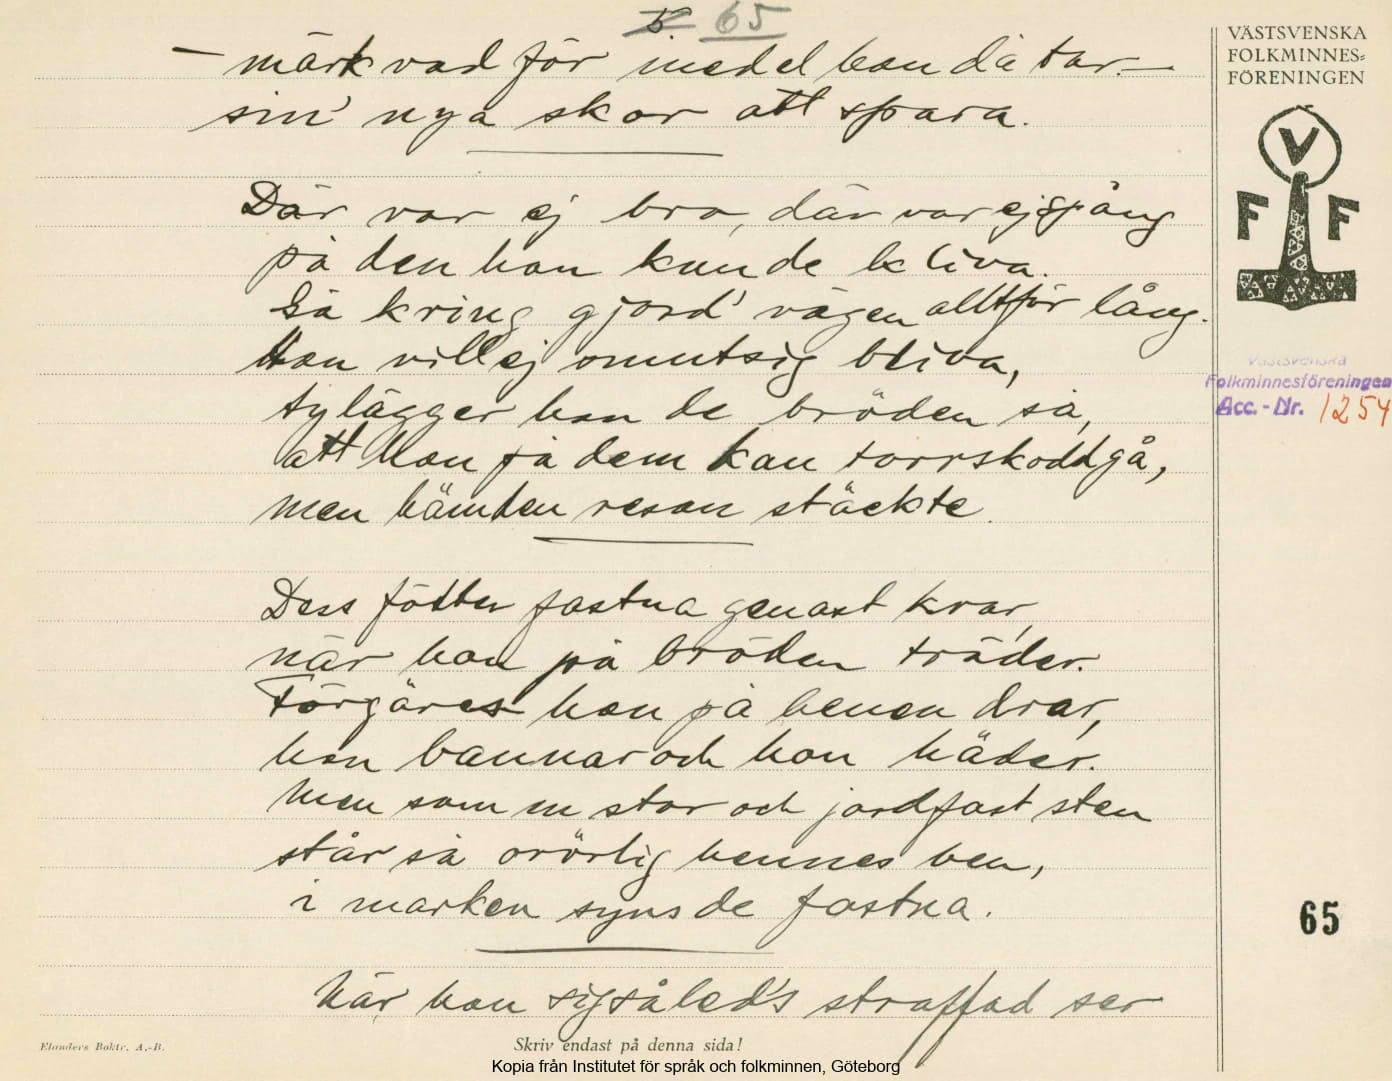 5. 65
– märk vad för medel hon då tar –
sin' nya skor att spara.
Där var ej bro, där var ej spång
på den hon kunde kliva.
Så kring gjord' vägen alltför lång.
Hon vill ej omutsig bliva,
ty lägger hon de bröden så,
att hon på dem kan torrskodd gå,
men hämden resan stäckte.
Dess fötter fastna genast kvar,
när hon på bröden träder.
Förgäves hon på benen drar,
hon bannar och hon häder.
Men som en stor och jordfast sten
står så orörlig hennes ben,
i marken syns de fastna.
När hon sig såled's straffad ser
VÄSTSVENSKA
FOLKMINNES=
FÖRENINGEN
V
F F
Västsvenska
Folkminnesföreningen
Acc. - Nr. 1254
65
Elanders Boktr. A.-B.
Skriv endast på denna sida!
Kopia från Institutet för språk och folkminnen, Göteborg